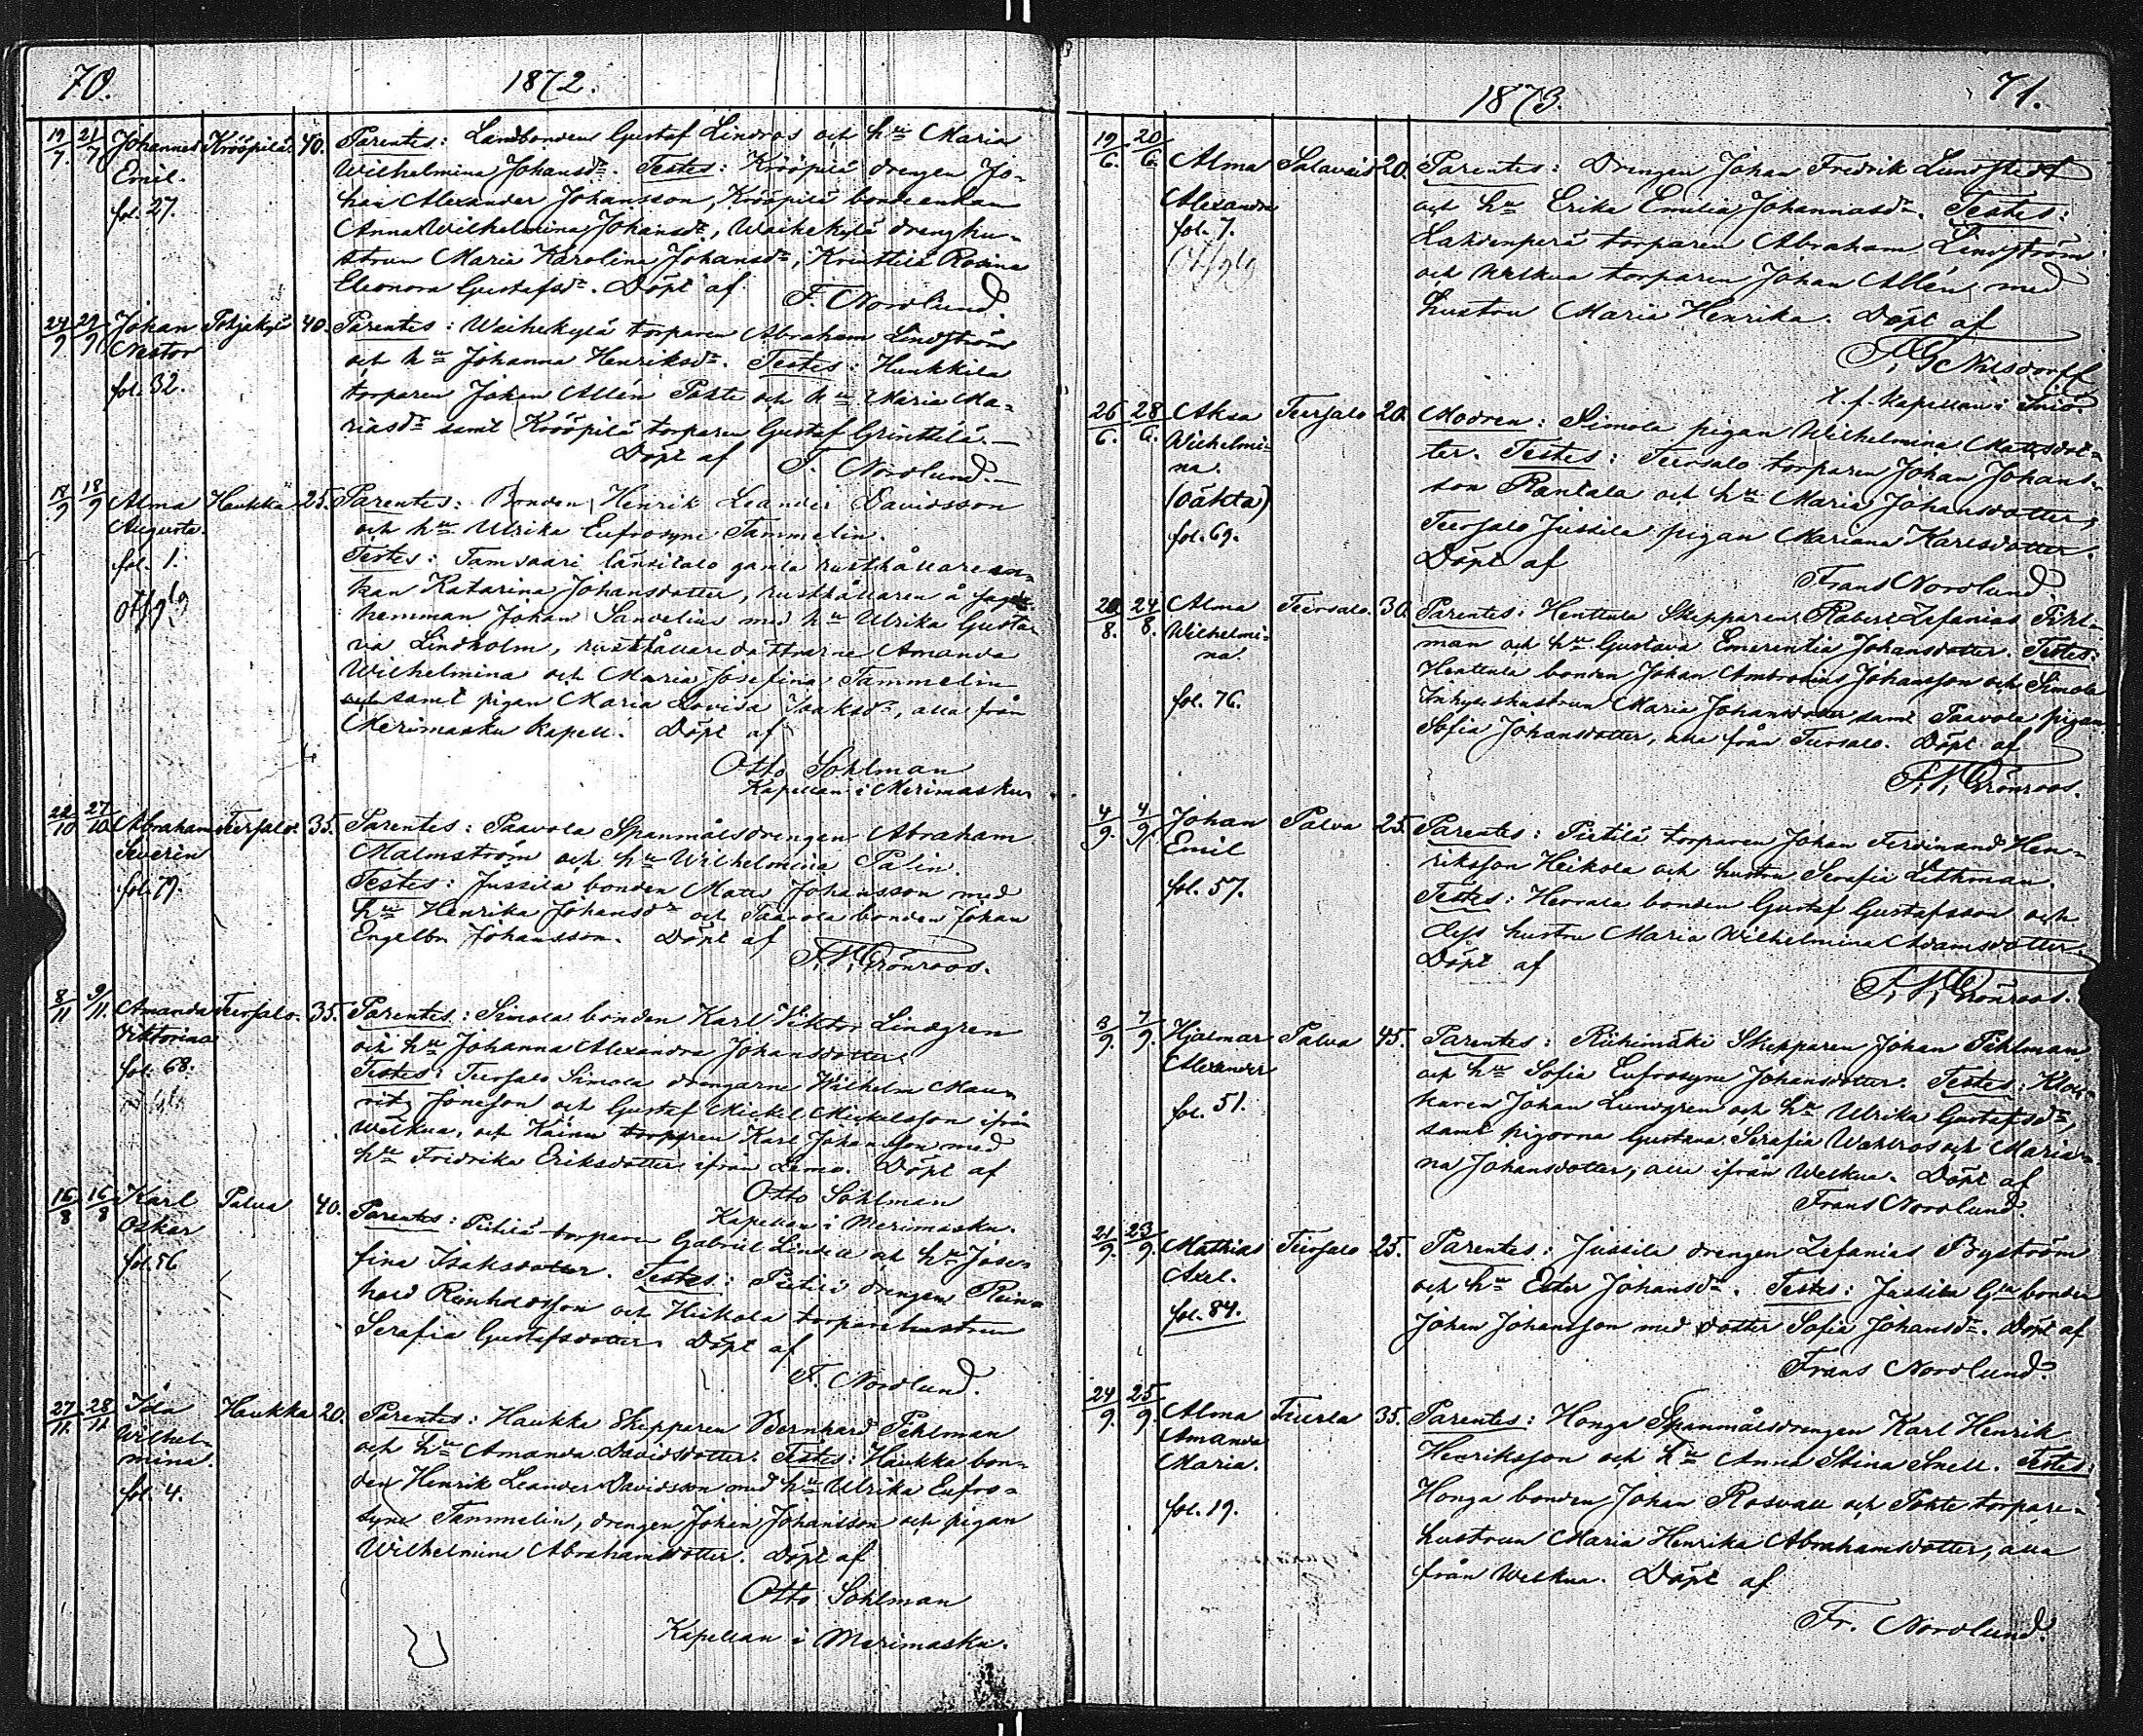 70.
1872.
19/7. 21/7 Johannes Krööpilä 40. Parentes: Landbonden Gustaf Lindros och hu Maria
Emil. Wilhelmina Johansdr. Testes: Krööpilä drengen Jo-
fol. 27. han Alexander Johansson, Krööpilä bondeenkan
Anna Wilhelmina Johansdr, Waihekylä drenghu-
strun Maria Karolina Johansdr, Rosina
Eleonora Gustafsdr. Döpt af
F. Nordlund.
Johan 40. Parentes: Waihekylä torparen Abraham Lindström
Nestor och hu Johanna Henriksdr. Testes: Hunkkila
fol. 32. torparen Johan Allén och hu Maria Ma-
riasdr samt Krööpilä torparen Gustaf Grinttilä.
Döpt af F. Nordlund.
18/9 18/9 Alma Haukka 25. Parentes: Bonden Henrik Leander Davidsson
Augusta. och hu Ulrika Eufrosyne Tammelin.
fol. 1. Testes: Tamsaari gamla rusthållareen-
kan Katarina Johansdotter, rusthållaren å
hemman Johan Sandelius med hu Ulrika Gusta-
va Lindholm, rusthållaredöttrarne Amanda
Wilhelmina och Maria Josefina Tammelin
samt pigan Maria Lovisa Isaksdr, alla från
Merimasku Kapell. Döpt af
Otto Sohlman
Kapellan i Merimasku
22/10 27/10 Abraham Teersalo. 35. Parentes: Paavola Spanmålsdrengen Abraham
Severin Malmström och hu Wilhelmina Palin.
fol. 79. Testes: Jussila bonden Mats Johansson med
hu Henrika Johansdr och Paavola bonden Johan
Engelbr. Johansson. Döpt af
F. W. Grönroos.
8/11 9/11. Amanda Teersalo. 35. Parentes: Simola bonden Karl Viktor Lindgren
Viktorina och hu Johanna Alexandra Johansdotter.
fol. 68. Testes: Teersalo Simola drengarne Wilhelm Mau-
ritz Jonsson och Gustaf Mickel Mickelsson ifrån
Welkua, och Kainu torparen Karl Johansson med
hu Fredrika Eriksdotter ifrån Lemo. Döpt af
Otto Sohlman
Kapellan i Merimasku.
16/8 16/8 Karl Palva 40. Parentes: Pietilä torparen Gabriel Lindell och hu Jose-
Oskar fina Isaksdotter. Testes: Pietilä drengen Rein-
fol. 56 hold Reinholdsson och Heikola torparehustrun
Serafia Gustafsdotter. Döpt af
F. Nordlund.
27/11. 28/11 Ida Haukka 20. Parentes: Haukka Skepparen Bernhard Pihlman
Wilhel- och hu Amanda Davidsdotter. Testes: Haukka bon-
mina. den Henrik Leander Davidsson med hu Ulrika Eufro-
fol. 4. syne Tammelin, drengen Johan Johansson och pigan
Wilhelmina Abrahamsdotter. Döpt af
Otto Sohlman
Kapellan i Merimasku.
71.
1873.
19/6. 20/6. Alma Salavais 20. Parentes: Drengen Johan Fredrik Lundstedt
Alexandra och hu Erika Emilia Johannasdr. Testes:
fol. 7. Lahdenperä torparen Abraham Lindström
och Welkua torparen Johan Allén med
hustru Maria Henrika. Döpt af
Nilsdorff
t. f. Kapellan i
26/6. 28/6. Aksa Teersalo 20. Modren: Simola pigan Wilhelmina Mattsdot-
Wilhelmi- ter. Testes: Teersalo torparen Johan Johans-
na. son Rantala och hu Maria Johansdotter,
(oäkta) Teersalo Jussila pigan Mariana Karlsdotter.
fol. 69. Döpt af
Frans Nordlund.
20/8. 24/8. Alma Teersalo. 30. Parentes: Henttula Skepparen Robert Zefanias Pihl-
Wilhelmi- man och hu Gustava Emerentia Johansdotter. Testes:
na. Henttula bonden Johan Ambrosius Johansson och Simola
fol. 76. Inhyseshustrun Maria Johansdotter samt Paavola pigan
Sofia Johansdotter, alla från Teersalo. Döpt af
F. W. Grönroos.
4/9. 4/9. Johan Palva 25. Parentes: Pietilä torparen Johan Ferdinand Hen-
Emil riksson Heikola och hustru Serafia Lithman.
fol. 57. Testes: bonden Gustaf Gustafsson och
dess hustru Maria Wilhelmina Adamsdotter.
Döpt af
F. W. Grönroos.
3/9. 7/9. Hjalmar Palva 45. Parentes: Riihimäki Skepparen Johan Pihlman
Alexander och hu Sofia Eufrosyne Johansdotter. Testes: Kloc-
fol. 51. karen Johan Lundgren och hu Ulrika Gustafsdr,
samt pigorna Gustava Serafia Wahlros och Maria-
na Johansdotter, alla ifrån Welkua. Döpt af
Frans Nordlund.
21/9. 23/9. Mathias Teersalo 25. Parentes: Jussila drengen Zefanias Byström
Axel. och hu Ester Johansdr. Testes: Jussila bonden
fol. 84. Johan Johansson med dotter Sofia Johansdr. Döpt af
Frans Nordlund.
24/9. 25/9. Alma 35. Parentes: Honga Spanmålsdrengen Karl Henrik
Amanda Henriksson och hu Anna Stina Snell. Testes:
Maria. Honga bonden Johan Rosvall och torpare-
fol. 19. hustrun Maria Henrika Abrahamsdotter, alla
från Welkua. Döpt af
Fr. Nordlund.